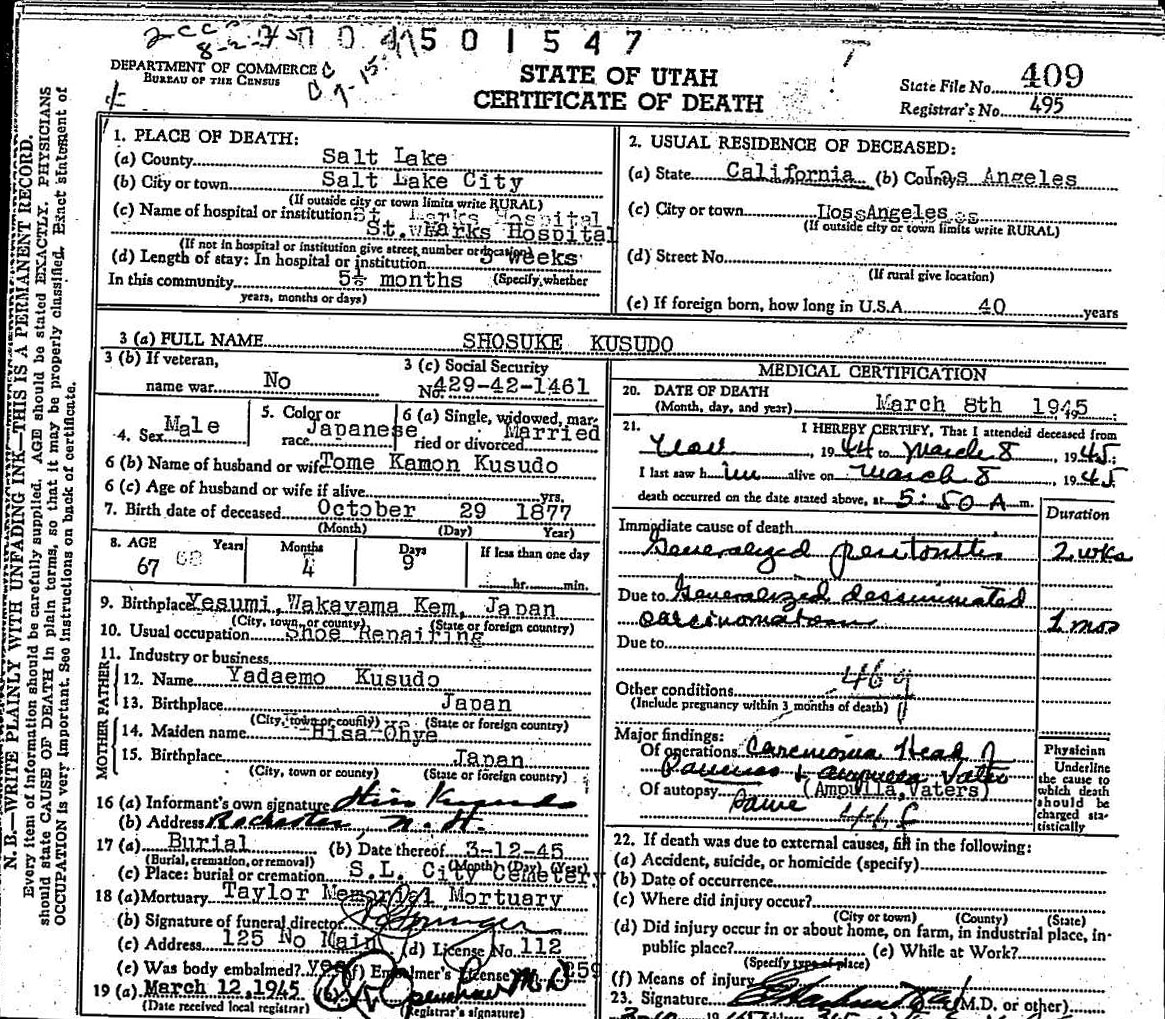 2 CC
8-2-45
7 0 4 5 0 1 5 4 7
DEPARTMENT OF COMMERCE
BUREAU OF THE CENSUS
STATE OF UTAH
CERTIFICATE OF DEATH
State File No. 409
Registrar's No. 495
N. B.—WRITE PLAINLY WITH UNFADING INK—THIS IS A PERMANENT RECORD.
Every item of information should be carefully supplied. AGE should be stated EXACTLY. PHYSICIANS
should state CAUSE OF DEATH in plain terms, so that it may be properly classified. Exact statement of
OCCUPATION is very important. See instructions on back of certificate.
1. PLACE OF DEATH:
(a) County Salt Lake
(b) City or town Salt Lake City
(If outside city or town limits write RURAL)
(c) Name of hospital or institution St. Marks Hospital
St. Marks Hospital
(If not in hospital or institution give street number or location)
(d) Length of stay: In hospital or institution 3 weeks
In this community 5½ months (Specify whether
years, months or days)
2. USUAL RESIDENCE OF DECEASED:
(a) State California (b) County Los Angeles
(c) City or town Los Angeles
(If outside city or town limits write RURAL)
(d) Street No.
(If rural give location)
(e) If foreign born, how long in U.S.A. 40 years
3 (a) FULL NAME SHOSUKE KUSUDO
3 (b) If veteran,
name war. No
3 (c) Social Security
No. 429-42-1461
4. Sex Male
5. Color or
race. Japanese
6 (a) Single, widowed, mar-
ried or divorced Married
6 (b) Name of husband or wife Tome Kamon Kusudo
6 (c) Age of husband or wife if alive yrs.
7. Birth date of deceased October 29 1877
(Month) (Day) Year)
8. AGE Years Months Days If less than one day
67 68 4 9 hr. min.
9. Birthplace Yesumi, Wakayama Kem, Japan
(City, town, or county) (State or foreign country)
10. Usual occupation Shoe Repairing
11. Industry or business
FATHER
12. Name Yadaemo Kusudo
13. Birthplace Japan
(City, town or county) (State or foreign country)
MOTHER
14. Maiden name Hisa Ohye
15. Birthplace Japan
(City, town or county) (State or foreign country)
16 (a) Informant's own signature Kusudo
(b) Address Rochester, N. H.
17 (a) Burial (b) Date thereof 3-12-45
(Burial, cremation, or removal) (Month) (Day) (Year)
(c) Place: burial or cremation S.L. City Cemetery
18 (a) Mortuary Taylor Memorial Mortuary
(b) Signature of funeral director
(c) Address 125 No Main (d) License No. 112
(e) Was body embalmed? yes (f) Embalmer's License 259
19 (a) March 12, 1945 (b) M.D
(Date received local registrar) (Registrar's signature)
MEDICAL CERTIFICATION
20. DATE OF DEATH
(Month, day, and year) March 8th 1945
21. I HEREBY CERTIFY, That I attended deceased from
Nov , 1944 to March 8 , 1945;
I last saw h im alive on March 8 , 1945
death occurred on the date stated above, at 5:50 A m.
Duration
Immediate cause of death
Generalized peritonitis 2 wks
Due to Generalized dessiminated
carcinomatosis 1 mos
Due to
46 g
Other conditions
(Include pregnancy within 3 months of death)
Major findings:
Of operations Carcinoma Head of
Pancreas & ampulla Vater
(Ampulla, Vaters)
Of autopsy Same
Physician
Underline
the cause to
which death
should be
charged sta-
tistically
22. If death was due to external causes, fill in the following:
(a) Accident, suicide, or homicide (specify)
(b) Date of occurrence
(c) Where did injury occur?
(City or town) (County) (State)
(d) Did injury occur in or about home, on farm, in industrial place, in-
public place? (e) While at Work?
(Specify type of place)
(f) Means of injury
23. Signature (M.D. or other)